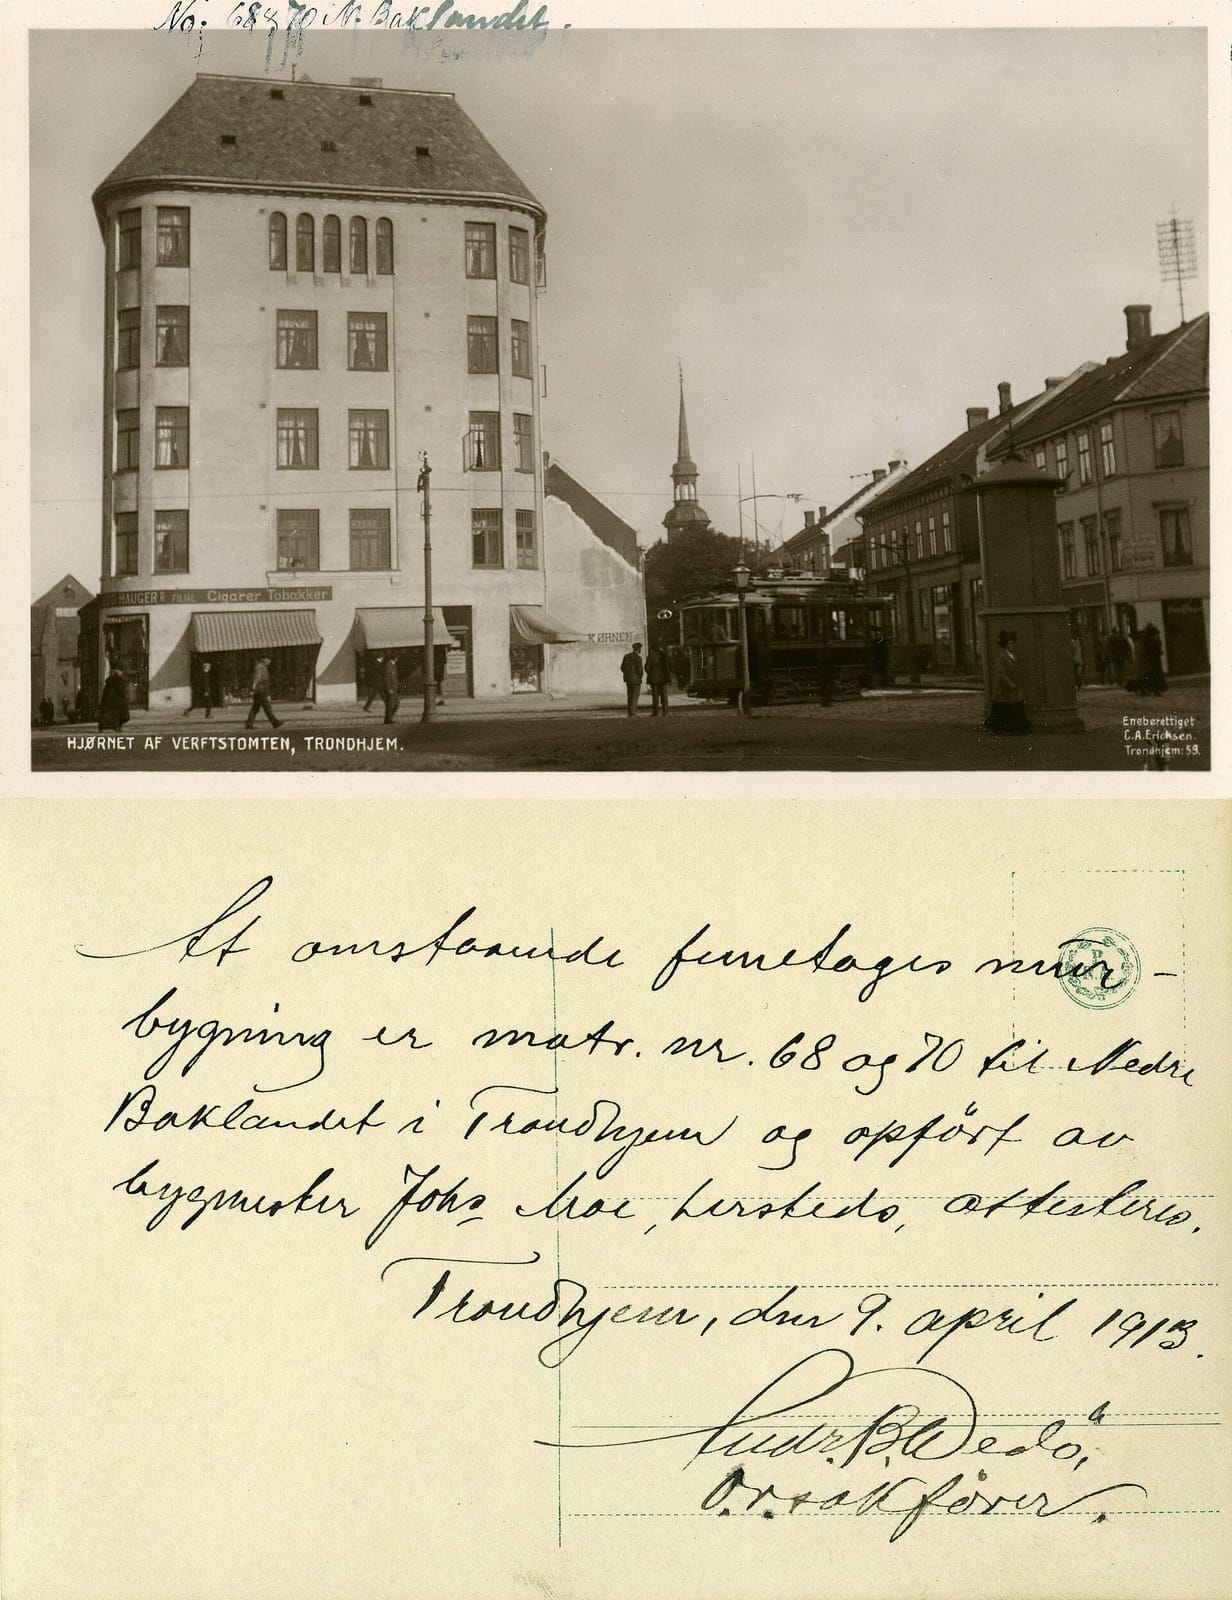 No: 68 & 70 N. Baklandet.
HAUGER FILIAL Cigarer Tobakker
KØRNEN
HJØRNET AF VERFTSTOMTEN, TRONDHJEM.
Eneberettiget
C.A.Erichsen.
Trondhjem: 59.
At omstaaende femetages mur-
bygning er matr. nr. 68 og 70 til Nedre
Baklandet i Trondhjem og opført av
bygmester Johs Moe, hersteds, attesteres.
Trondhjem, den 9. april 1913.
O.r.sakfører.